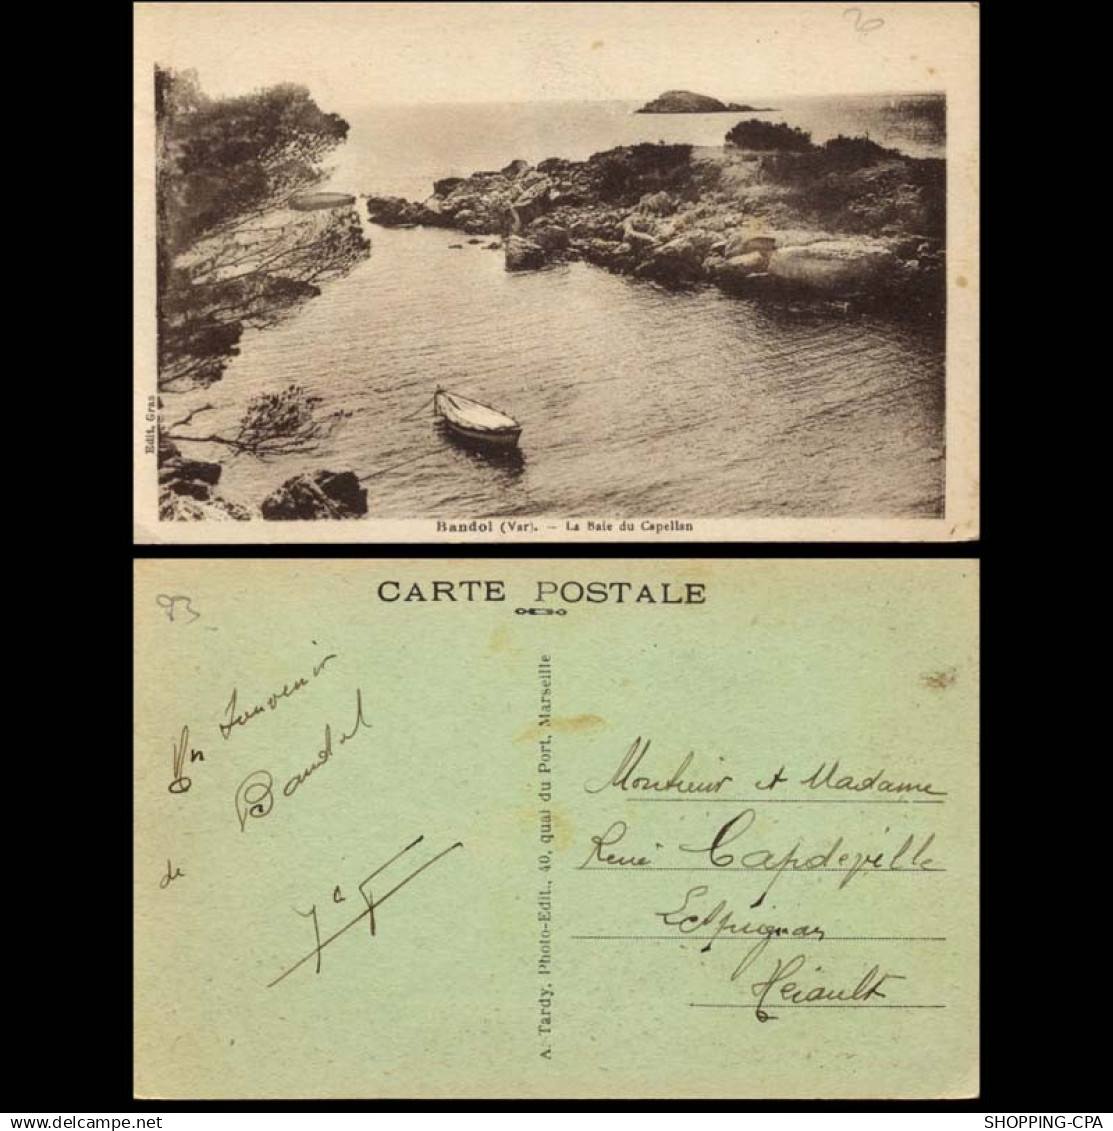 20
Edit. Gras
Bandol (Var). — La Baie du Capellan
CARTE POSTALE
93
Un Souvenir
de Bandol
A. Tardy, Photo-Edit., 40, quai du Port, Marseille
Monsieur et Madame
René Capdeville
Lespignan
Hérault
SHOPPING-CPA